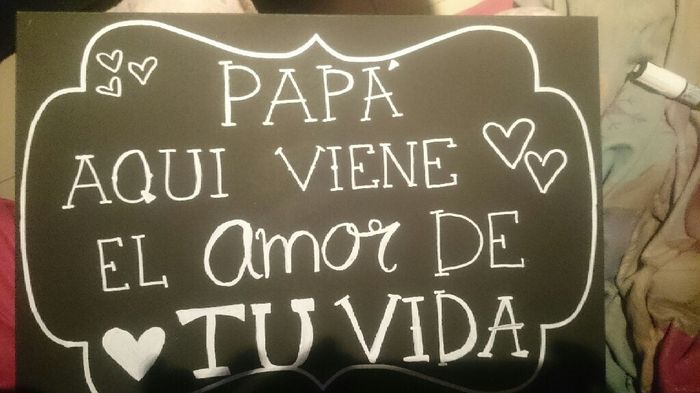 PAPÁ
AQUI VIENE
EL amor DE
TU VIDA